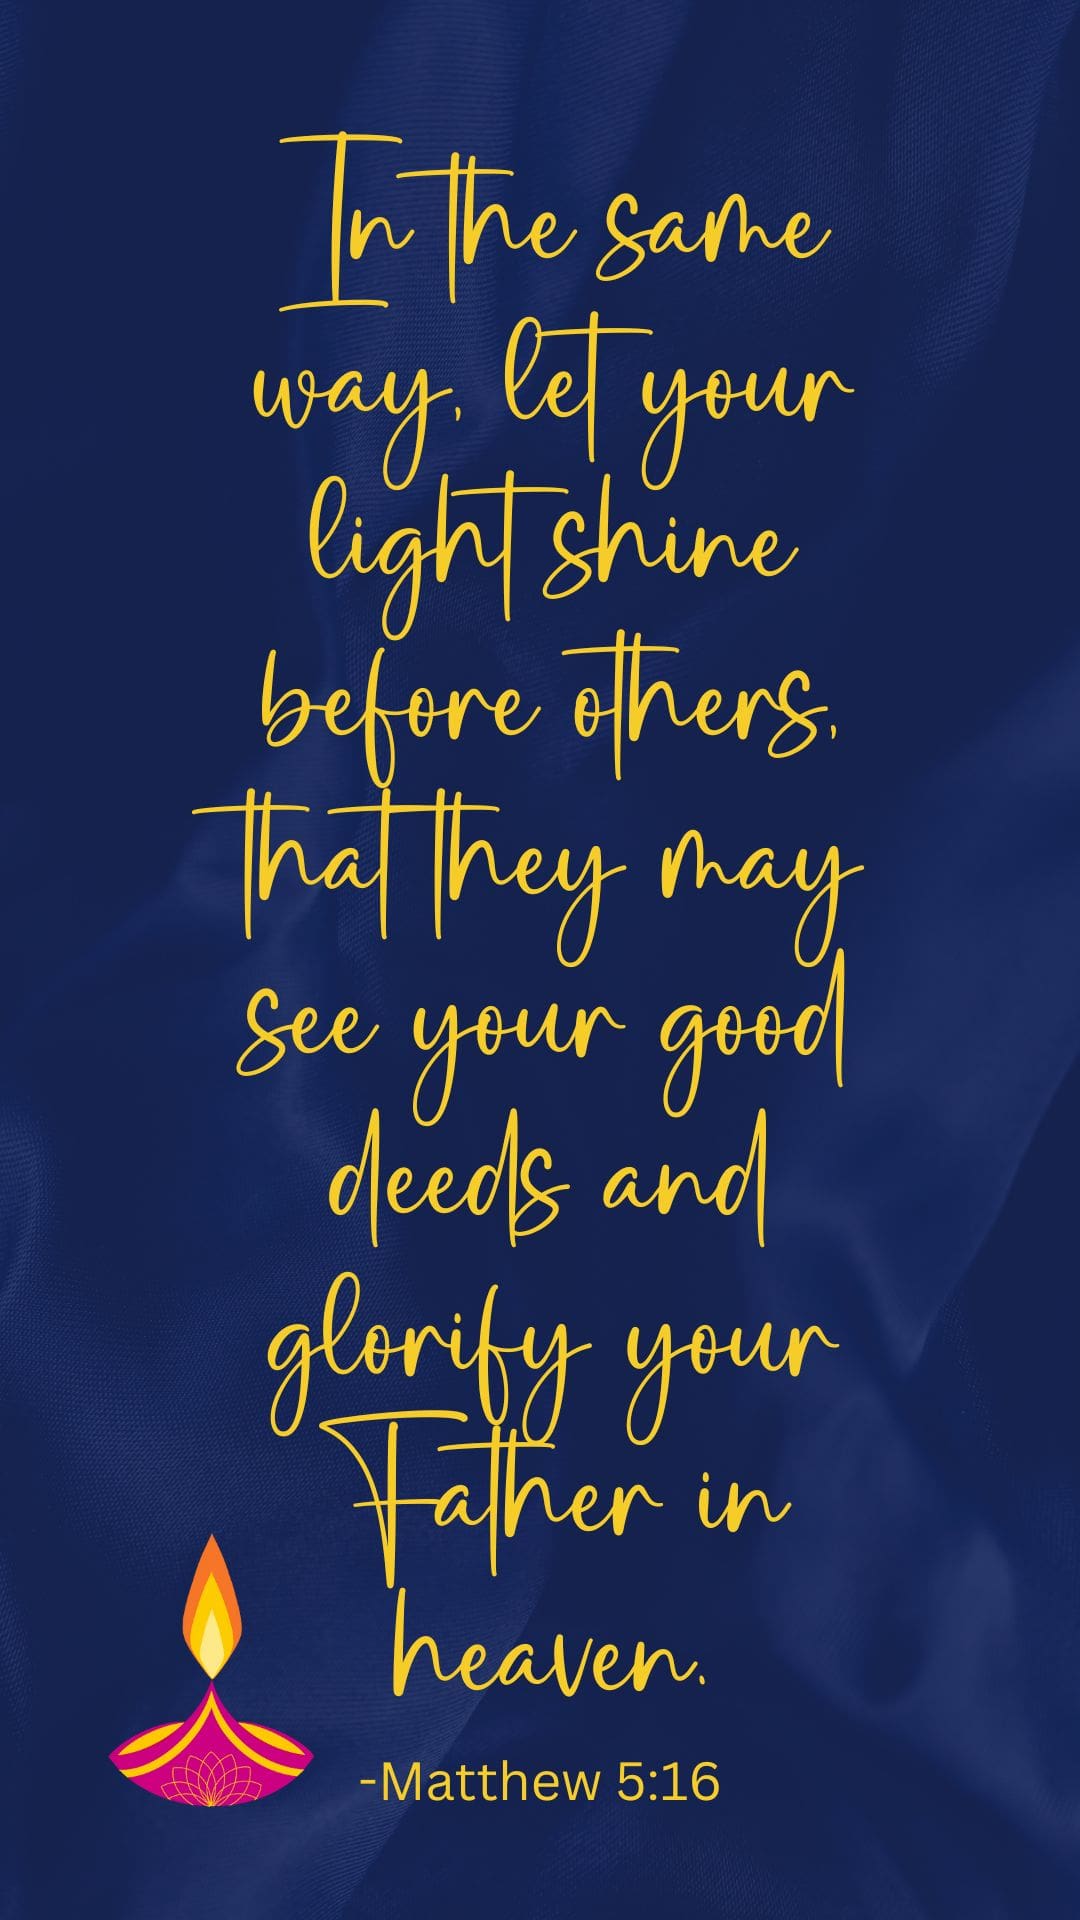 In the same
way, let your
light shine
before others,
that they may
see your good
deeds and
glorify your
Father in
heaven.
-Matthew 5:16